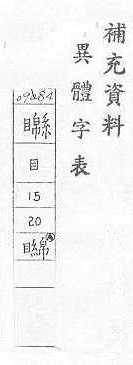 補充資料
異體字表
矊
目
15
20